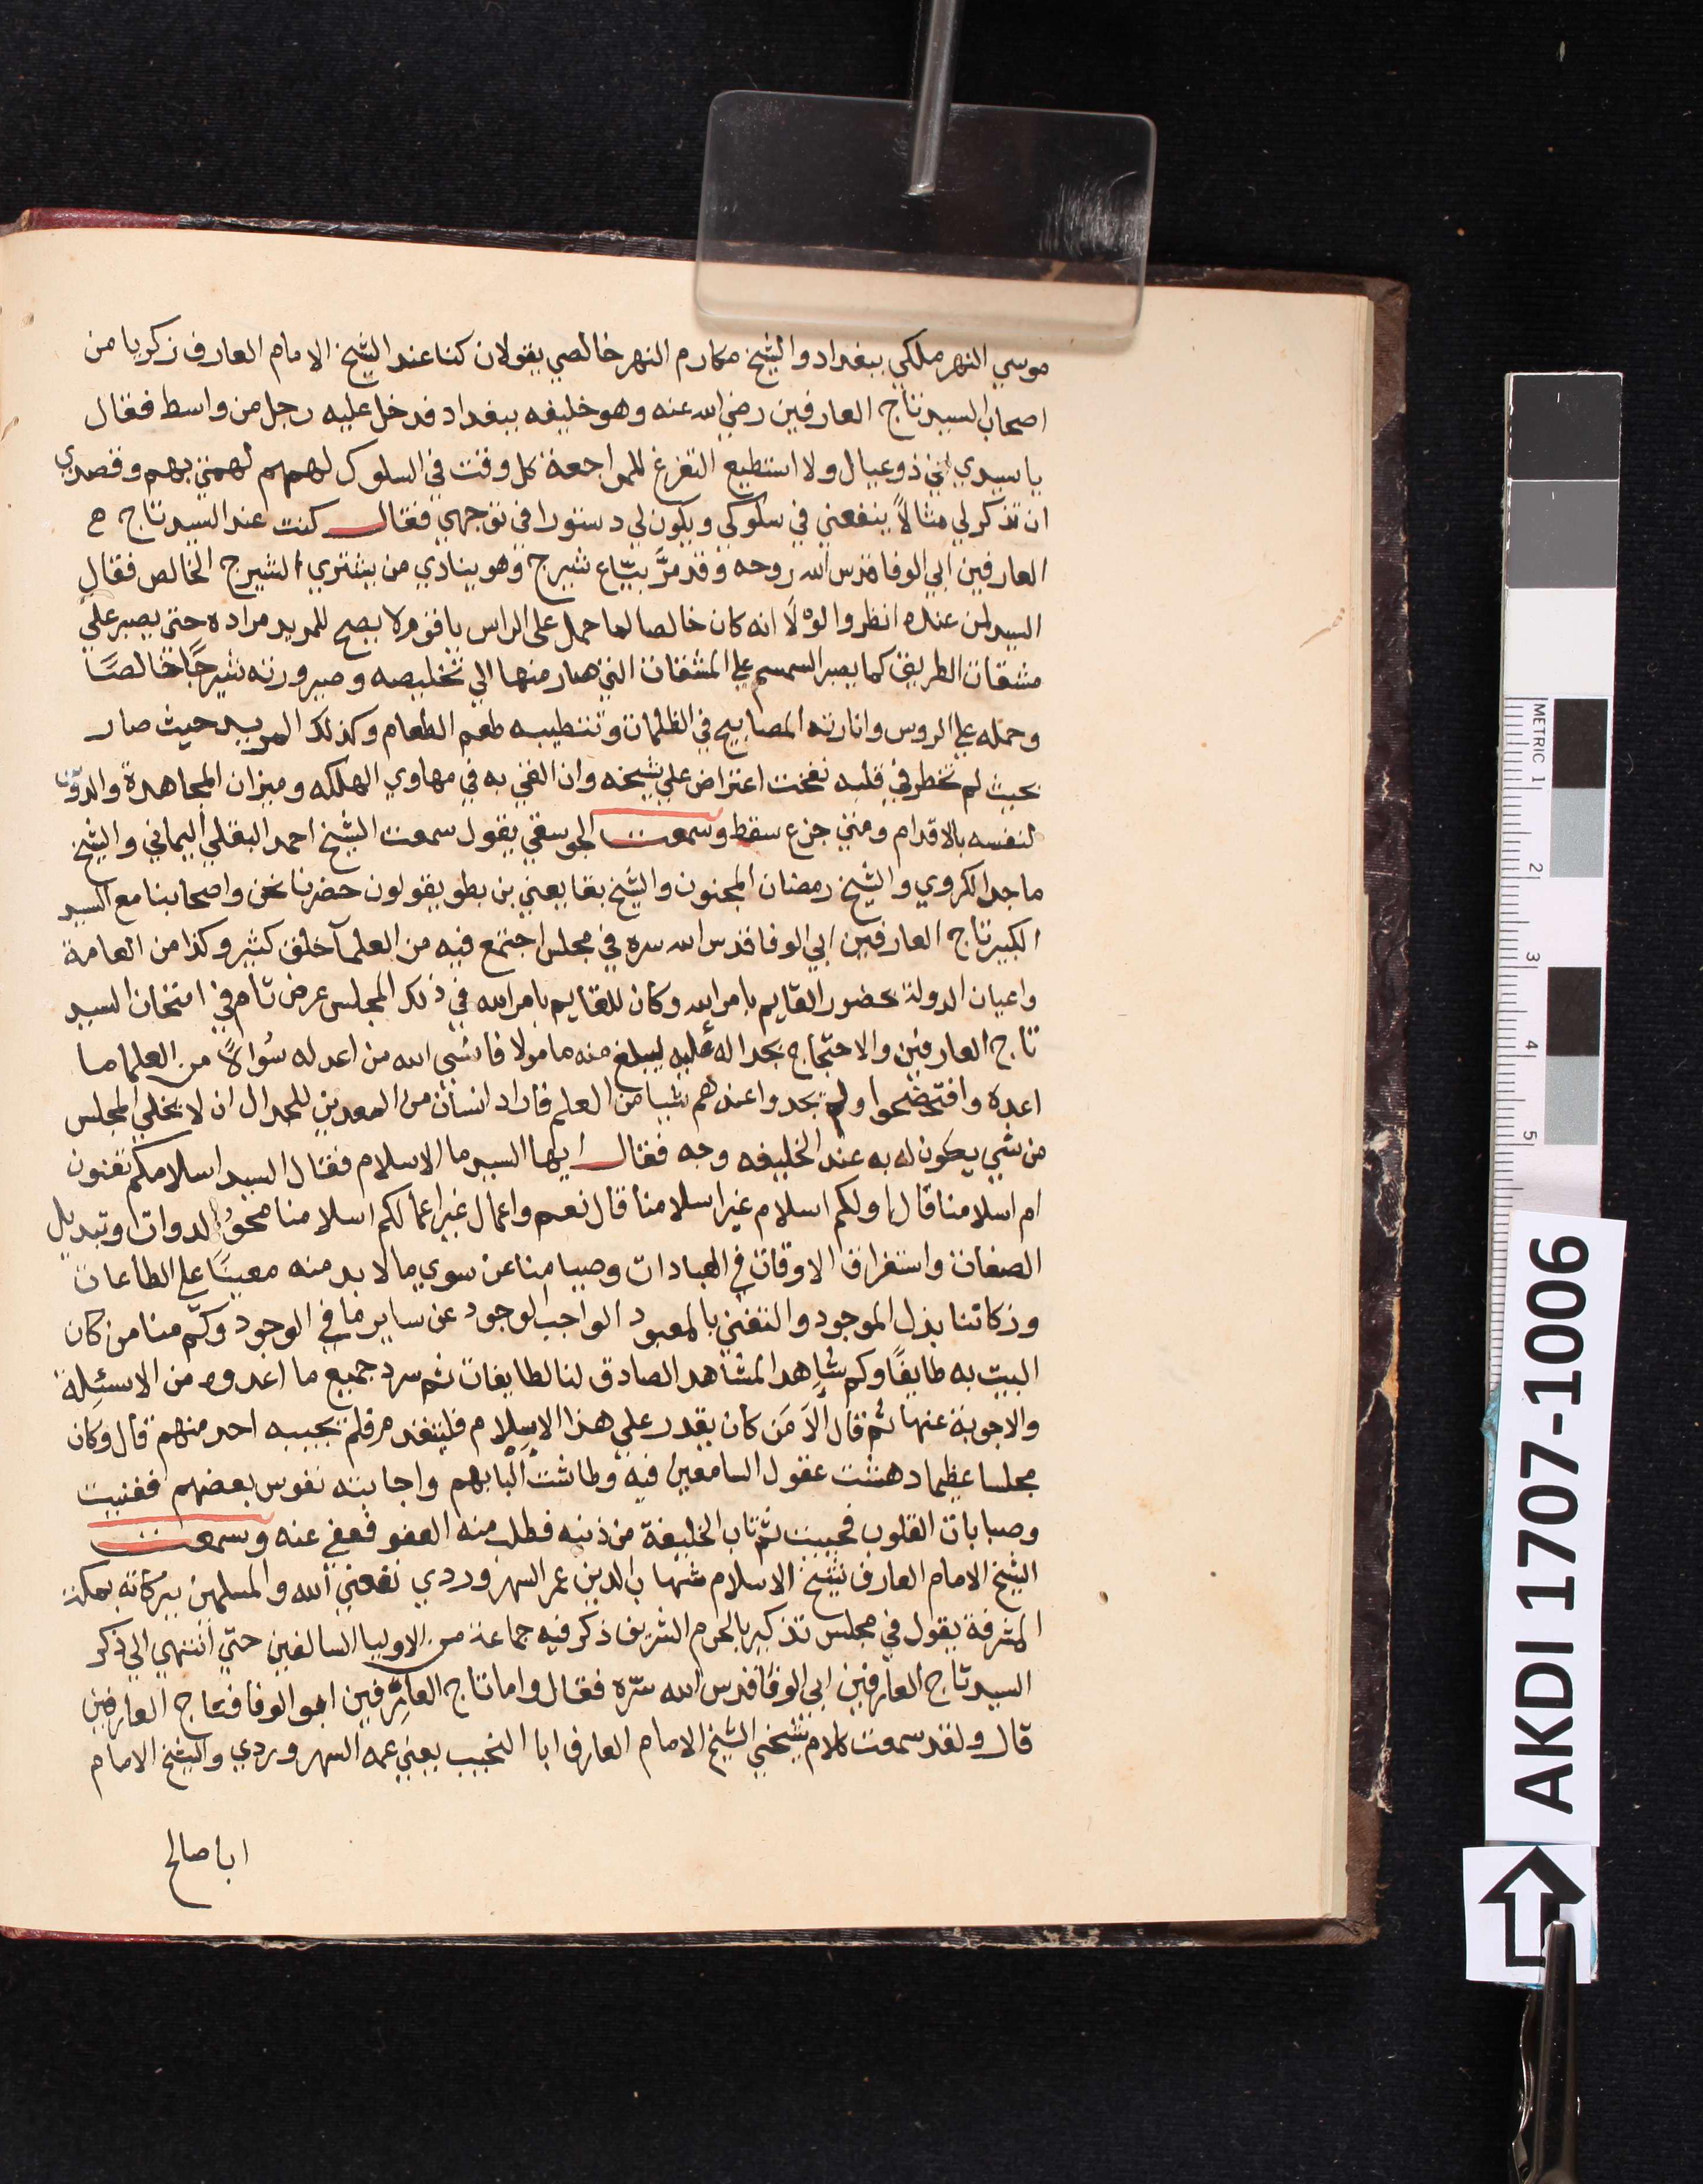 موسي النهرملكي ببغداد والشيخ مكارم النهرخالصي يقولان كنا عند الشيخ الامام العارف زكريا من
اصحاب السيد تاج العارفين رضي الله عنه وهو خليفه ببغداد فدخل عليه رجل من واسط فقال
يا سيدي اني ذو عيال ولا استطيع التفرغ للمراجعة كل وقت في السلوك لهمهم تهمني بهم وقصدي
ان تذكر لي مثالاً ينفعني في سلوكي ويكون لي دستورا في توجهي فقال كنت عند السيد تاج
العارفين ابي الوفا قدس الله روحه وقد مرَّ بيّاع شيرج وهو ينادي من يشتري الشيرج الخالص فقال
السيد لمن عنده انظروا لوْلاَ انه كان خالصا لما حمل على الراس يا قوم لا يصح للمريد مراده حتى يصبر علي
مشقات الطريق كما يصبر السمسم علي المشقات التي صار منها الي تخليصه وصيرورته شيرجًا خالصًا
وحمله علي الروس وانارته المصابيح في الظلمات وتطييبه طعم الطعام وكذلك المريد حيث صار
بحيث لم تخطر في قلبه نفخت اعتراض علي شيخه وان القي به في مهاوي الهلكه وميزان المجاهدة والدوّن
لنفسه بالاقدام ومتي جزع سقط وسمعت الجوسقي يقول سمعت الشيخ احمد البقلي اليماني والشيخ
ماجد الكروي والشيخ رمضان المجنون والشيخ بقا يعني بن بطو يقولون حضرنا نحن واصحابنا مع السيد
الكبير تاج العارفين ابي الوفا قدس الله سره في مجلس اجتمع فيه من العلمآ خلق كثير وكذا من العامة
واعيان الدولة بحضور القايم بامر الله وكان للقايم بامر الله في ذلك المجلس عرض تام في امتحان السيد
تاج العارفين والاحتجاج بجداله عليه ليبلغ منه مامولا فانسي الله من اعد له سُوالاً من العلما ما
اعده وافتضحوا ولم يجدوا عندهم شيا من العلم فاراد انسان من المعدين للجدال ان لا يخلي المجلس
من شي يكون له به عند الخليفه وجه فقال ايها السيد ما الاسلام فقال السيد اسلامكم تعنون
ام اسلامنا قال اولكم اسلام غير اسلامنا قال نعم واعمال غير اعمالكم اسلامنا محوُ الدوات وتبديل
الصفات واستغراق الاوقات في العبادات وصيامنا عن سوي ما لا بد منه معينًا علي الطاعات
وزكاتنا بذل الموجود والتغني بالمعبود الواجب الوجود عن ساير ما في الوجود وكم منا من كان
البيت به طايفًا وكم شاهد المشاهد الصادق لنا لطايفات ثم سرد جميع ما اعدوه من الاسئِلة
والاجوبة عنها ثم قال الاَ مَن كان يقدر علي هذا الاسلام فليتقدم فلم يجيبه احد منهم قال وكان
مجلسا عظيما دهشت عقول السامعين فيه وطاشت البابهم واجابته نفوس بعضهم ففنيت
وصبابات القلوب فحييت ثم تاب الخليفة من ذنبه فطلب منه العفو فعفي عنه وسمعت
الشيخ الامام العارف شيخ الاسلام شهاب الدين عمر السهروردي نفعني الله والمسلمين ببركاته بمكة
المشرفة يقول في مجلس تذكير بالحرم الشريف ذكر فيه جماعة من الاوليا السالفين حتي انتهي الي ذكر
السيد تاج العارفين ابي الوفا قدس الله سرّه فقال واما تاج العارفين ابو الوفا فتاج العارفين
قال ولقد سمعت كلام شيخي الشيخ الامام العارف ابا النجيب يعني عمه السهروردي والشيخ الامام
ابا صالح
AKDI 1707-1006
METRIC 1 2 3 4 5